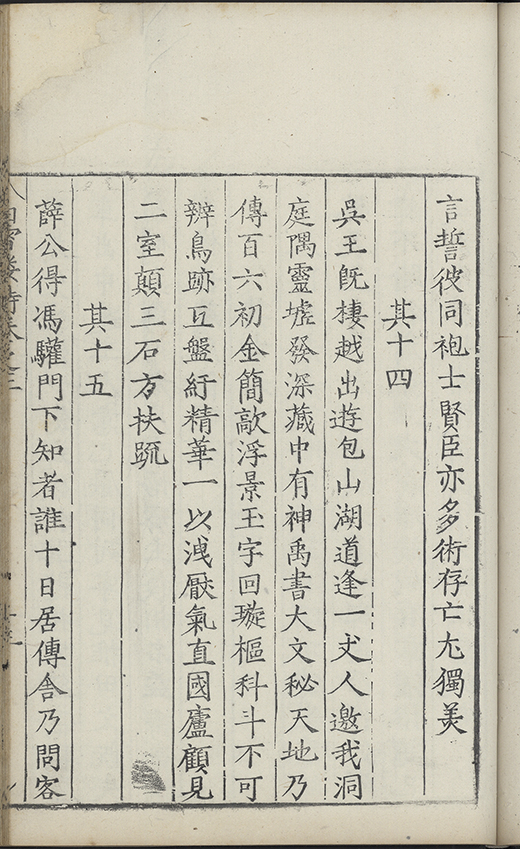 言誓彼同袍士賢臣亦多術存亡尤獨美
其十四
吳王旣棲越出遊包山湖道逢一丈人邀我洞
庭隅靈墟發深藏中有神禹書大文秘天地乃
傳百六初金簡敵浮景玉字回璇樞科斗不可
辨鳥跡互盤紆精華一以洩厭氣直國廬顧見
二室顛三石方扶䟽
其十五
薛公得馮驩門下知者誰十日居傳舍乃問客